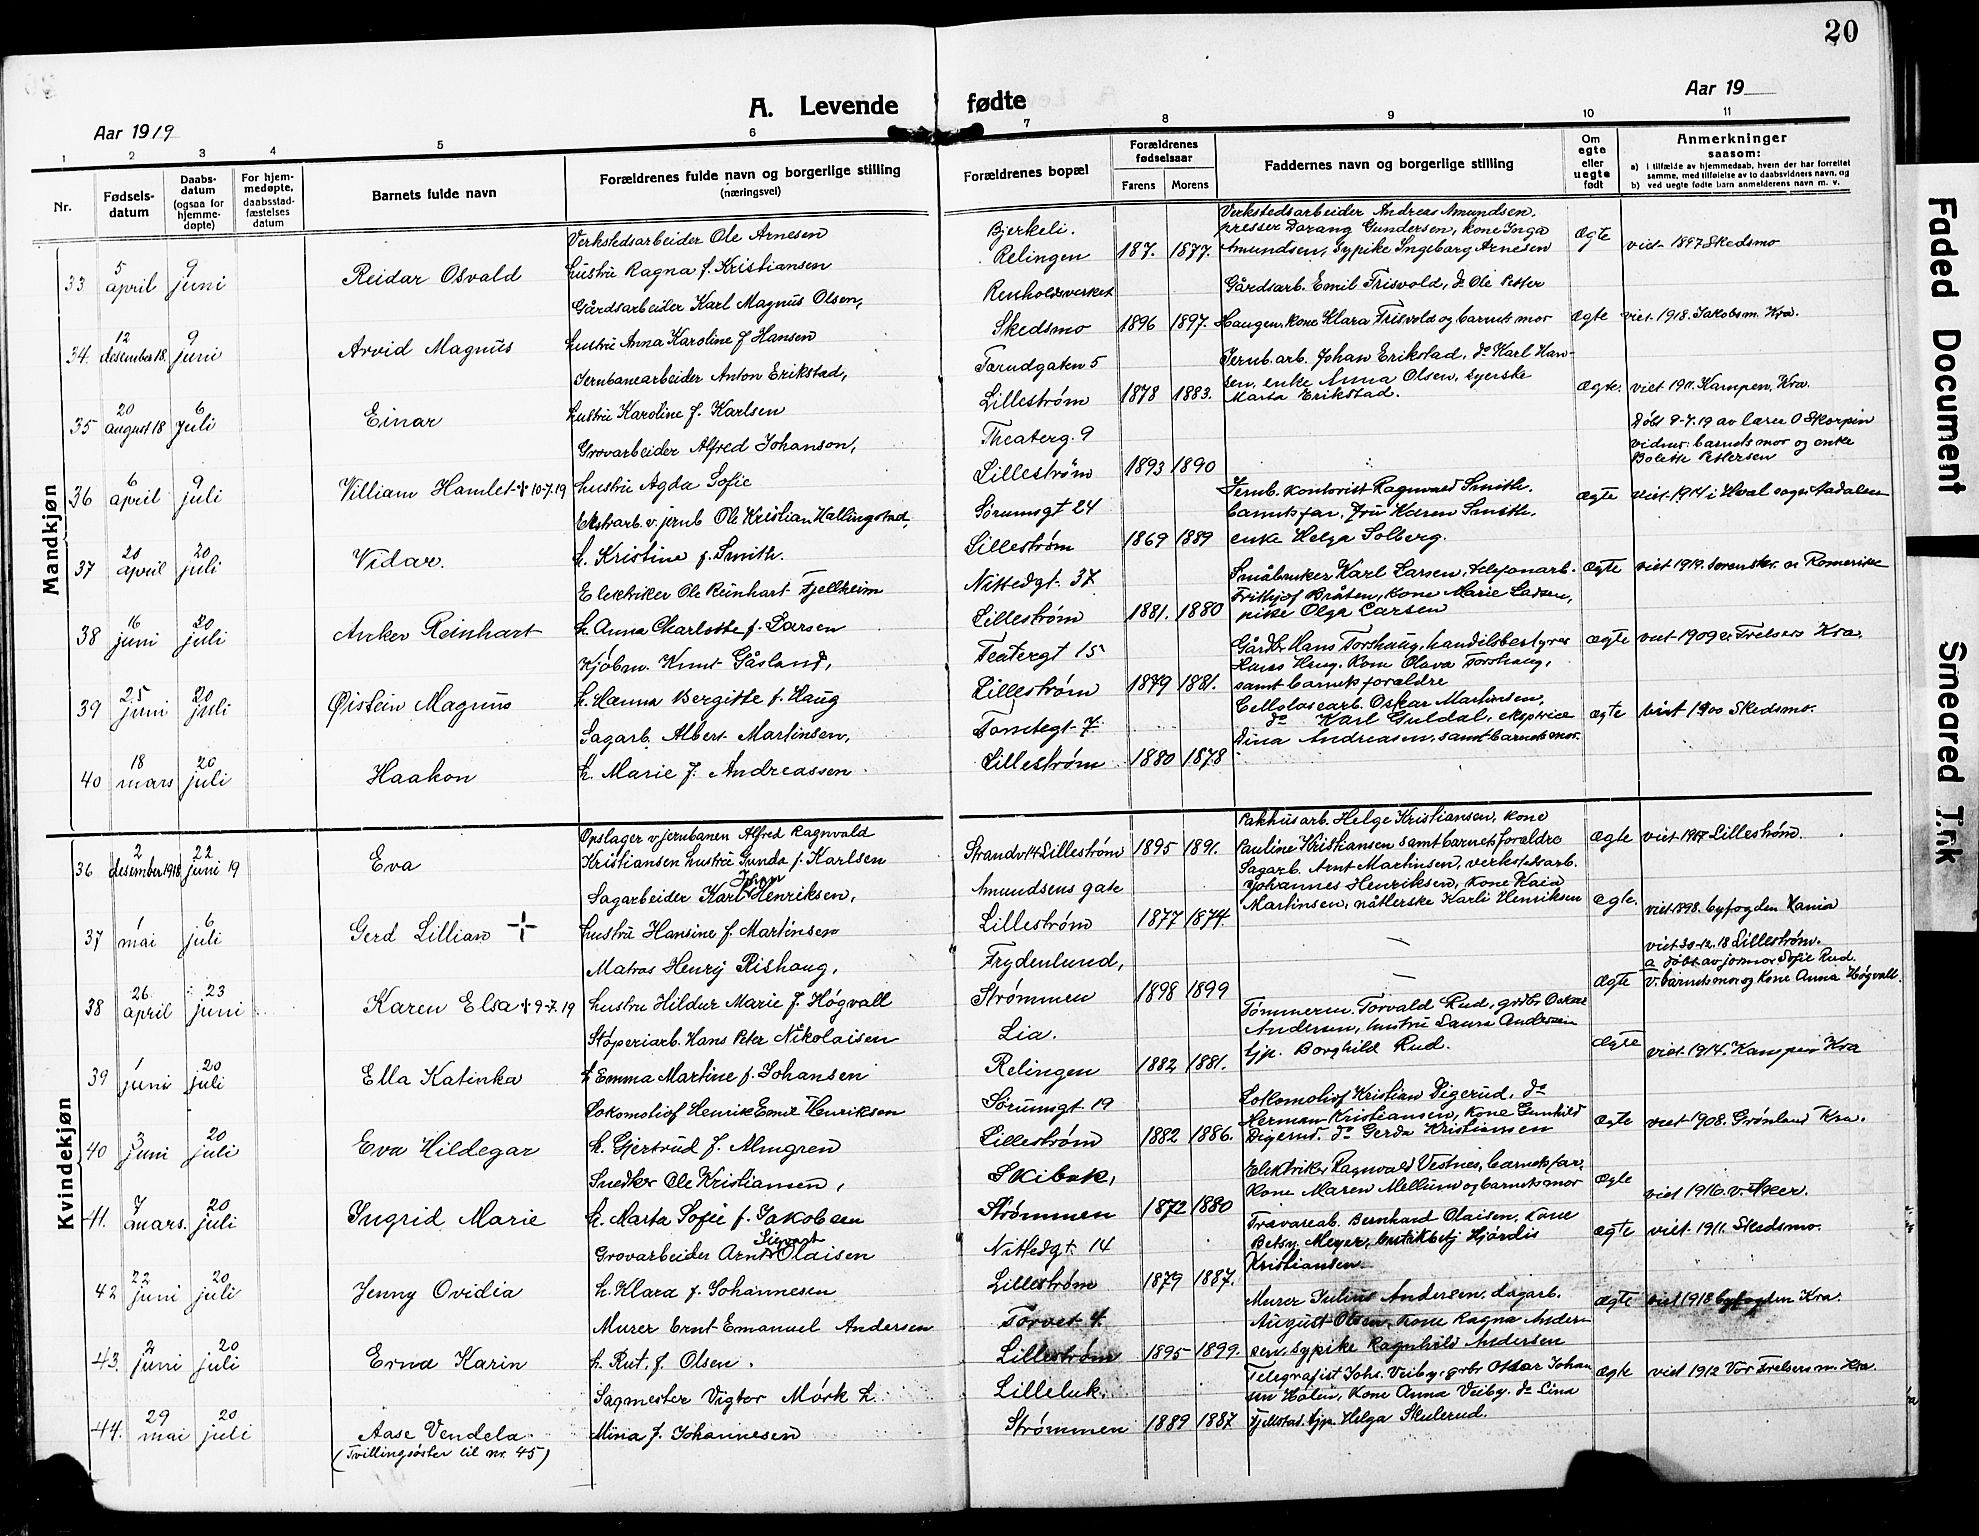 20
Aar 1919
A. Levende fødte
Aar 19
1 2 3 4 5 6 7 8 9 10 11
Nr.
Fødsels-datum
Daabs-datum (ogsaa for hjemme-døpte)
For hjem-medøpte, daabsstad-fæstelses datum
Barnets fulde navn
Forældrenes fulde navn og borgerlige stilling (næringsvei)
Forældrenes bopæl
Forældrenes fødselsaar
Farens Morens
Faddernes navn og borgerlige stilling
Om egte eller uegte født
Anmerkninger saasom:
a) i tilfælde av hjemmedaab, hvem der har forrettet samme, med tilføielse av to daabsvidners navn, og
b) ved uegte fødte barn anmelderens navn m. v.
Mandkjøn
33 5 april 9 juni Reidar Osvald
Verkstedsarbeider Ole Arnesen
hustru Ragna f. Kristiansen
Bjerkeli.
Relingen 187. 1877.
Verkstedsarbeider Andreas Amundsen,
presser Darang Gundersen, kone Inga
Amundsen, sypike Ingeborg Arnesen
Ægte viet 1897 Skedsmo
34. 12 desember 18. 9 juni Arvid Magnus
Gårdsarbeider Karl Magnus Olsen,
hustru Anna Karoline f Hansen
Renholdsverket
Skedsmo 1896 1897.
Gårdsarb. Emil Trisvold, do Ole Petter
Haugen, kone Klara Trisvold og barnets mor
Ægte viet 1918. Jakobs m. Kra.
35 20 august 18 6 juli Einar
Jernbanearbeider Anton Erikstad,
hustru Karoline f. Karlsen
Torudgaten 5
Lillestrøm 1878 1883.
Jernb. arb. Johan Erikstad, do Karl Han-
sen, enke Anna Olsen, syerske
Marta Erikstad.
Ægte. viet 1911. Kampen, Kra.
36 6 april 9 juli Villiam Hamlet ✝ 10-7.19
Grovarbeider Alfred Johanson,
hustru Agda Sofie
Theaterg. 9
Lillestrøm 1893 1890
Døbt 9-7.19 av lærer O Skorpin
vidner: barnets mor og enke
Bolette Pettersen
ægte viet 1914 i Hval sogn Aadalen
37 20 april 20 juli Vidar.
Ekstraarb. v. jernb Ole Kristian Hallingstad,
h. Kristine f. Smith.
Sørumsgt 24
Lillestrøm 1869 1889
Jernb. kontorist Ragnvald Smith.
barnets far, fru Karen Smith,
enke Helga Solberg.
Ægte viet 1919. sorenskr. N Romerike
38 16 juni 20 juli Anker Reinhart
Elektriker Ole Reinhart Fjellheim
h. Anna Charlotte f. Larsen
Nittedgt. 37
Lillestrøm 1881. 1880
Småbruker Karl Larsen, telefonarb.
Frithjof Bråten, kone Marie Larsen,
pike Olga Larsen
ægte viet 1909 v. Frelsers Kra.
39 25 juni 20 juli Øistein Magnus
Kjøbm. Knut Gåsland,
h. Hanna Bergitte f. Haug
Teatergt 15
Lillestrøm 1879 1881.
Gårdb. Hans Torshaug, handelsbestyrer
Hans Haug, kone Olava Torshaug,
samt barnets forældre
ægte viet 1900 Skedsmo.
40 18 mars 20 juli Haakon
Sagarb. Albert Martinsen,
h. Marie f. Andreassen
Tomtegt 7
Lillestrøm 1880 1878
Cellolosearb. Oskar Martinsen,
do Karl Guldal, ekspricе
Dina Andreasen, samt barnets mor.
Kvindekjøn
36 2 desember 1918 22 juni 19 Eva
Opslager v jernbanen Alfred Ragnvald
Kristiansen hustru Gunda f. Karlsen
Strandv 14 Lillestrøm 1895 1891.
Pakhusarb. Helge Kristiansen, kone
Pauline Kristiansen samt barnets forældre
Ægte viet 1917 Lillestrøm
37 1 mai 6 juli Gerd Lillian ✝
Sagarbeider Karl Johan Henriksen,
hustru Hansine f. Martinsen
Amundsens gate
Lillestrøm 1877 1874.
Sagarb. Arnt Martinsen, verkstedsarb.
Johannes Henriksen, kone Kaia
Martinsen, nåtlerske Karli Henriksen
Ægte. viet 1898. byfogden Kania
38 26. april 23 juni Karen Elsa ✝ 9-7.19
Matros Henry Rishaug,
hustru Hildur Marie f. Høgvall
Frydenlund,
Strømmen 1898 1899
viet 30-12.18 Lillestrøm.
a døbt av jormor Sofie Rud.
Ægte v. barnets mor og kone Anna Høgvall.
39 1 juni 20 juli Ella Katinka
Støperiarb. Hans Peter Nikolaisen
h Emma Martine f. Johansen
Lia.
Relingen 1882 1881.
Tømmerm. Torvald Rud, grdbr Oskar
Andersen, hustru Laura Andersen
tjp. Borghild Rud.
Ægte viet. 1914. Kampen Kra
40 3 juni 20 juli Eva Hildegar
Lokomotivf Henrik Emil Henriksen
h. Gjertrud f. Almgren
Sørumsgt. 19
Lillestrøm 1882 1886.
Lokomotivf Kristian Digerud, do
Herman Kristiansen, kone Gunhild
Digerud, do Gerda Kristiansen
Ægte viet 1908. Grønland Kra.
41. 7 mars. 20 juli Ingrid Marie
Snedker Ole Kristiansen,
h. Marta Sofie f. Jakobsen
Skibak,
Strømmen 1872 1880
Elektriker Ragnvald Vestnes, barnets far,
kone Maren Mellum og barnets mor
Ægte viet 1916. v. Aker.
42 22 juni 20 juli Jenny Ovidia
Grovarbeider Arnt Sigvart Olaisen
h. Klara f. Johannesen
Nittedgt. 14
Lillestrøm 1879 1887.
Trævareab. Bernhard Olaisen, kone
Betsy Meyer, butikbetj Hjørdis
Kristiansen.
ægte viet. 1911. Skedsmo.
43. 2 juni 20 juli Erna Karin
Murer Ernt Emanuel Andersen
h. Rut. f. Olsen.
Torvet 4
Lillestrøm 1895 1899.
Murer Julius Andersen, dagarb.
August Olsen, kone Ragna Ander-
sen, sypike Ragnhild Andersen
Ægte viet 1918 byfogden Kra.
44. 29 mai 20 juli Aase Vendela.
(Tvillingsøster til nr. 45)
Sagmester Vigtor Mørk h.
Mina f. Johannesen
Lilleluk.
Strømmen 1889 1887
Telegrafist Johs. Veiby, grbr Ottar Johan
sen Holen, kone Anna Veiby, do Lina
Fjellstad, tjp. Helga Skulerud.
ægte viet 1912 Vor Frelsers m. Kra.
Faded Document
Smeared Ink